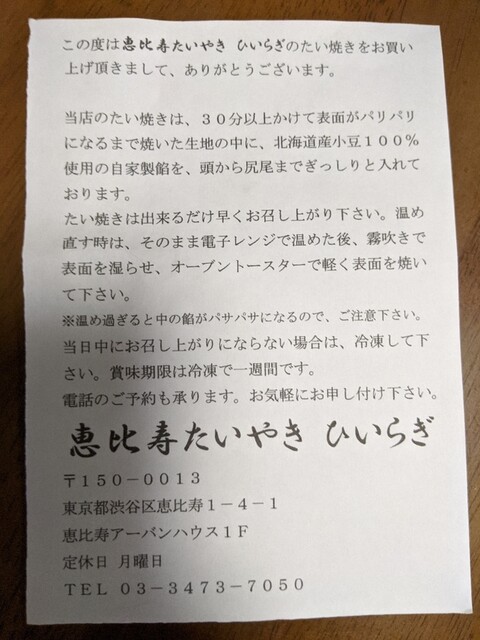 この度は恵比寿たいやき ひいらぎのたい焼きをお買い
上げ頂きまして、ありがとうございます。
当店のたい焼きは、３０分以上かけて表面がパリパリ
になるまで焼いた生地の中に、北海道産小豆１００％
使用の自家製餡を、頭から尻尾までぎっしりと入れて
おります。
たい焼きは出来るだけ早くお召し上がり下さい。温め
直す時は、そのまま電子レンジで温めた後、霧吹きで
表面を湿らせ、オーブントースターで軽く表面を焼い
て下さい。
※温め過ぎると中の餡がパサパサになるので、ご注意下さい。
当日中にお召し上がりにならない場合は、冷凍して下
さい。賞味期限は冷凍で一週間です。
電話のご予約も承ります。お気軽にお申し付け下さい。
恵比寿たいやき ひいらぎ
〒１５０－００１３
東京都渋谷区恵比寿１－４－１
恵比寿アーバンハウス１Ｆ
定休日 月曜日
ＴＥＬ ０３－３４７３－７０５０